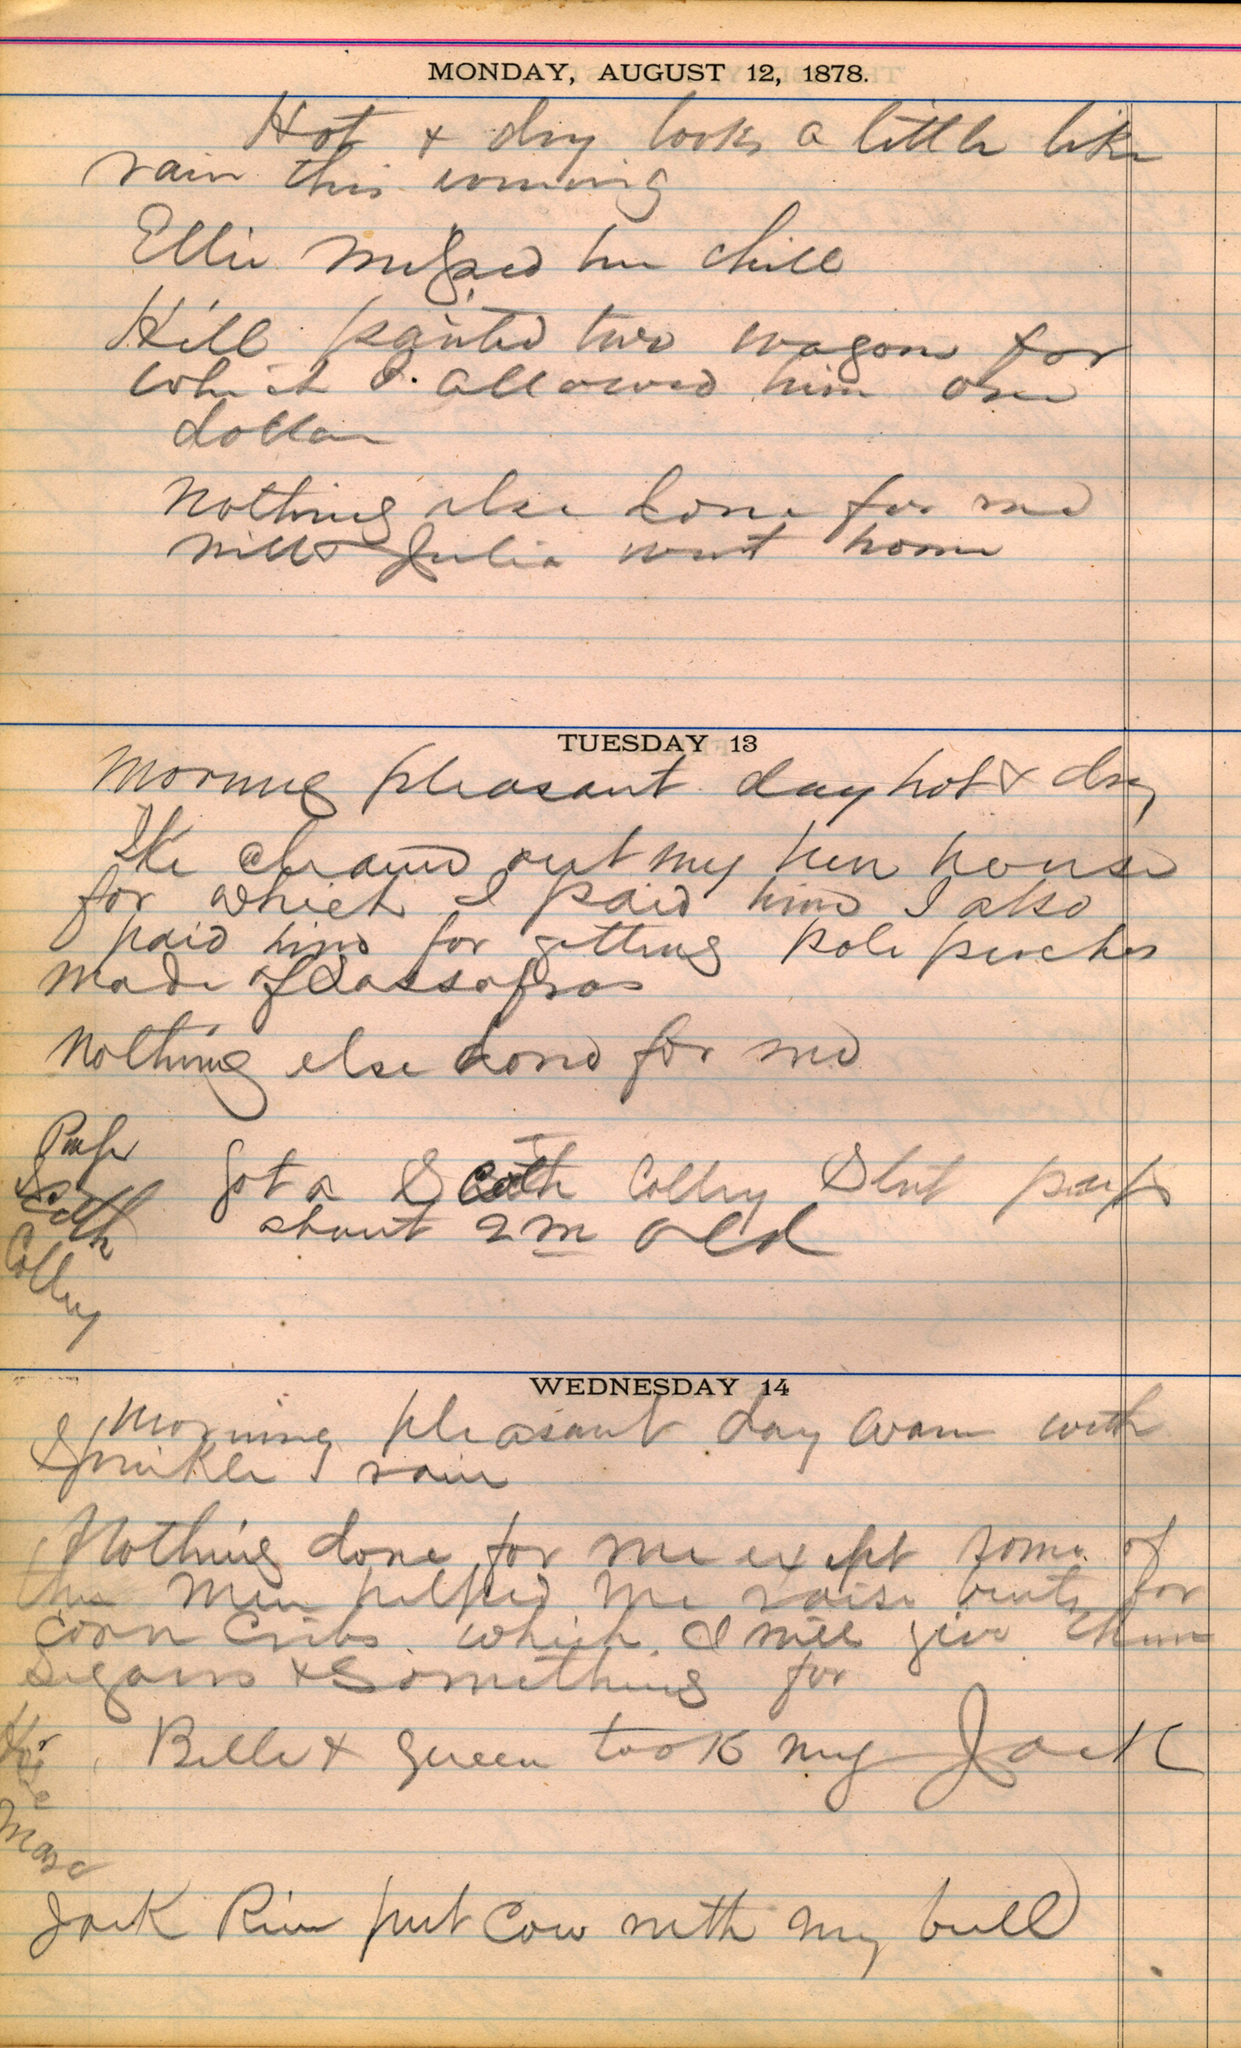 MONDAY, AUGUST 12, 1878.
Hot & dry looks a little like
rain this evening
Ellie missed her chill
Hill painted two wagons for
which I allowed him one
dollar
Nothing else done for me
Julia went home
TUESDAY 13
Morning pleasant day hot & dry
Ike cleaned out my hen house
for which I paid him I also
paid him for getting pole perches
made of Sassafras
Nothing else done for me
Pup
Scotch
Colley
Got a Scotch Colley Slut pup
about 2 m old
WEDNESDAY 14
Morning pleasant day warm with
Sprinkle of rain
Nothing done for me except some of
the men helped me raise bents for
Corn Cribs which I will give them
Segars & Something for
Belle & Queen took my Jack
Horse
Mare
Jack put Cow with my bull